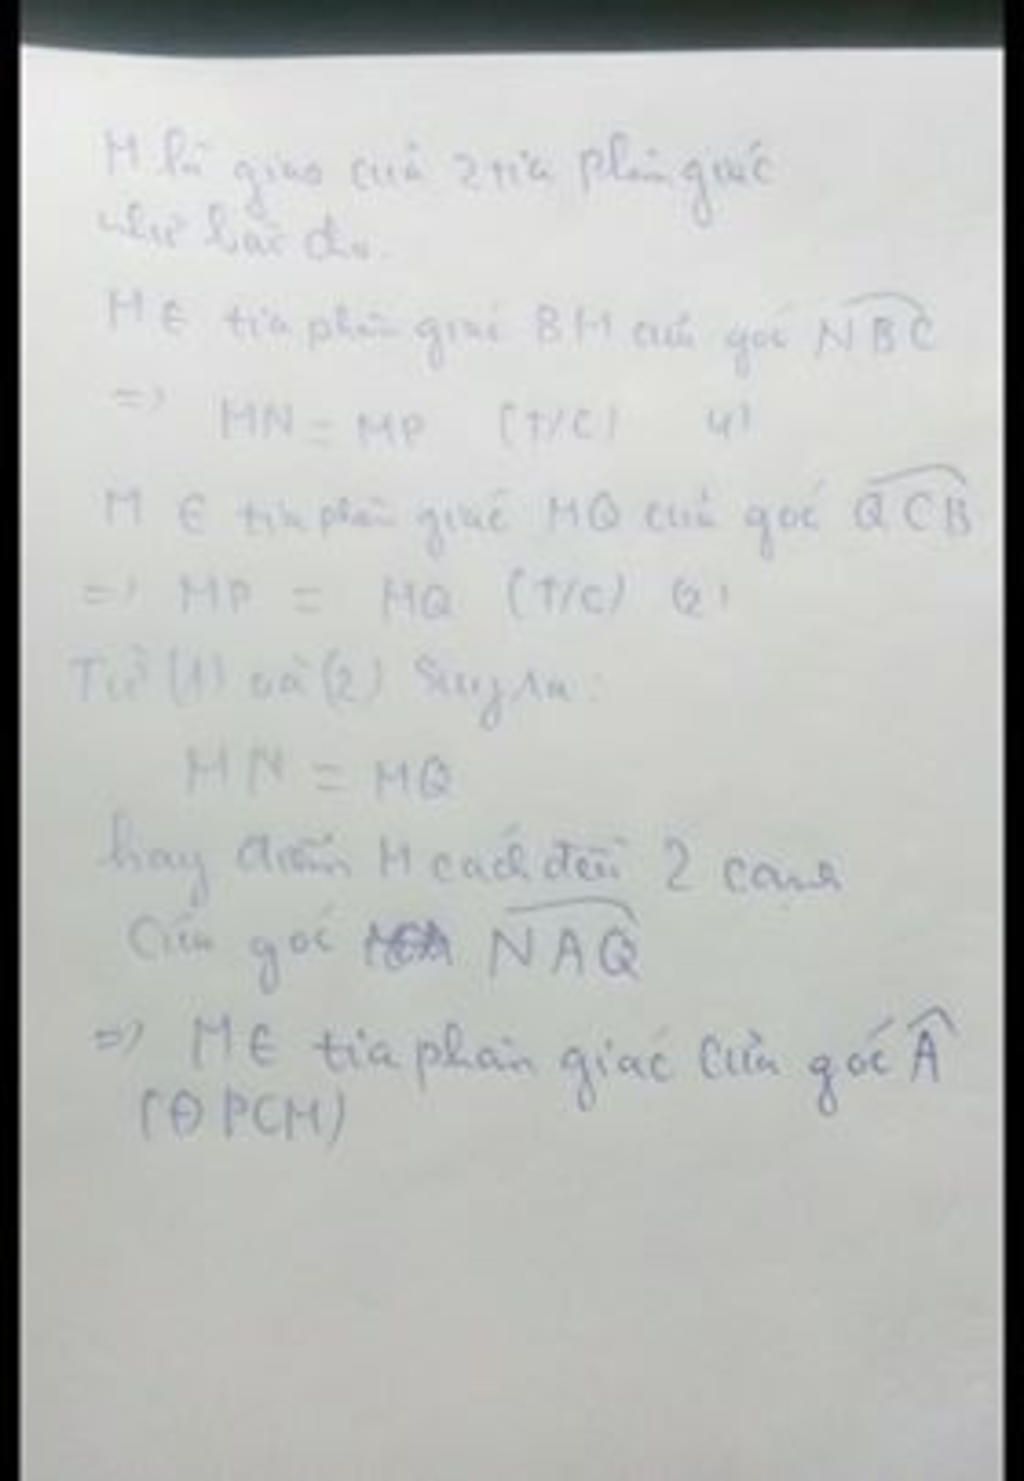 M là giao của 2 tia phân giác
như bài cho.
M ∈ tia phân giác BM của góc NBC
=> MN = MP (T/C) (1)
M ∈ tia phân giác MQ của góc QCB
=> MP = MQ (T/C) (2)
Từ (1) và (2) Suy ra:
MN = MQ
hay điểm M cách đều 2 cạnh
Của góc NAQ
=> M ∈ tia phân giác Của góc Â
(ĐPCM)